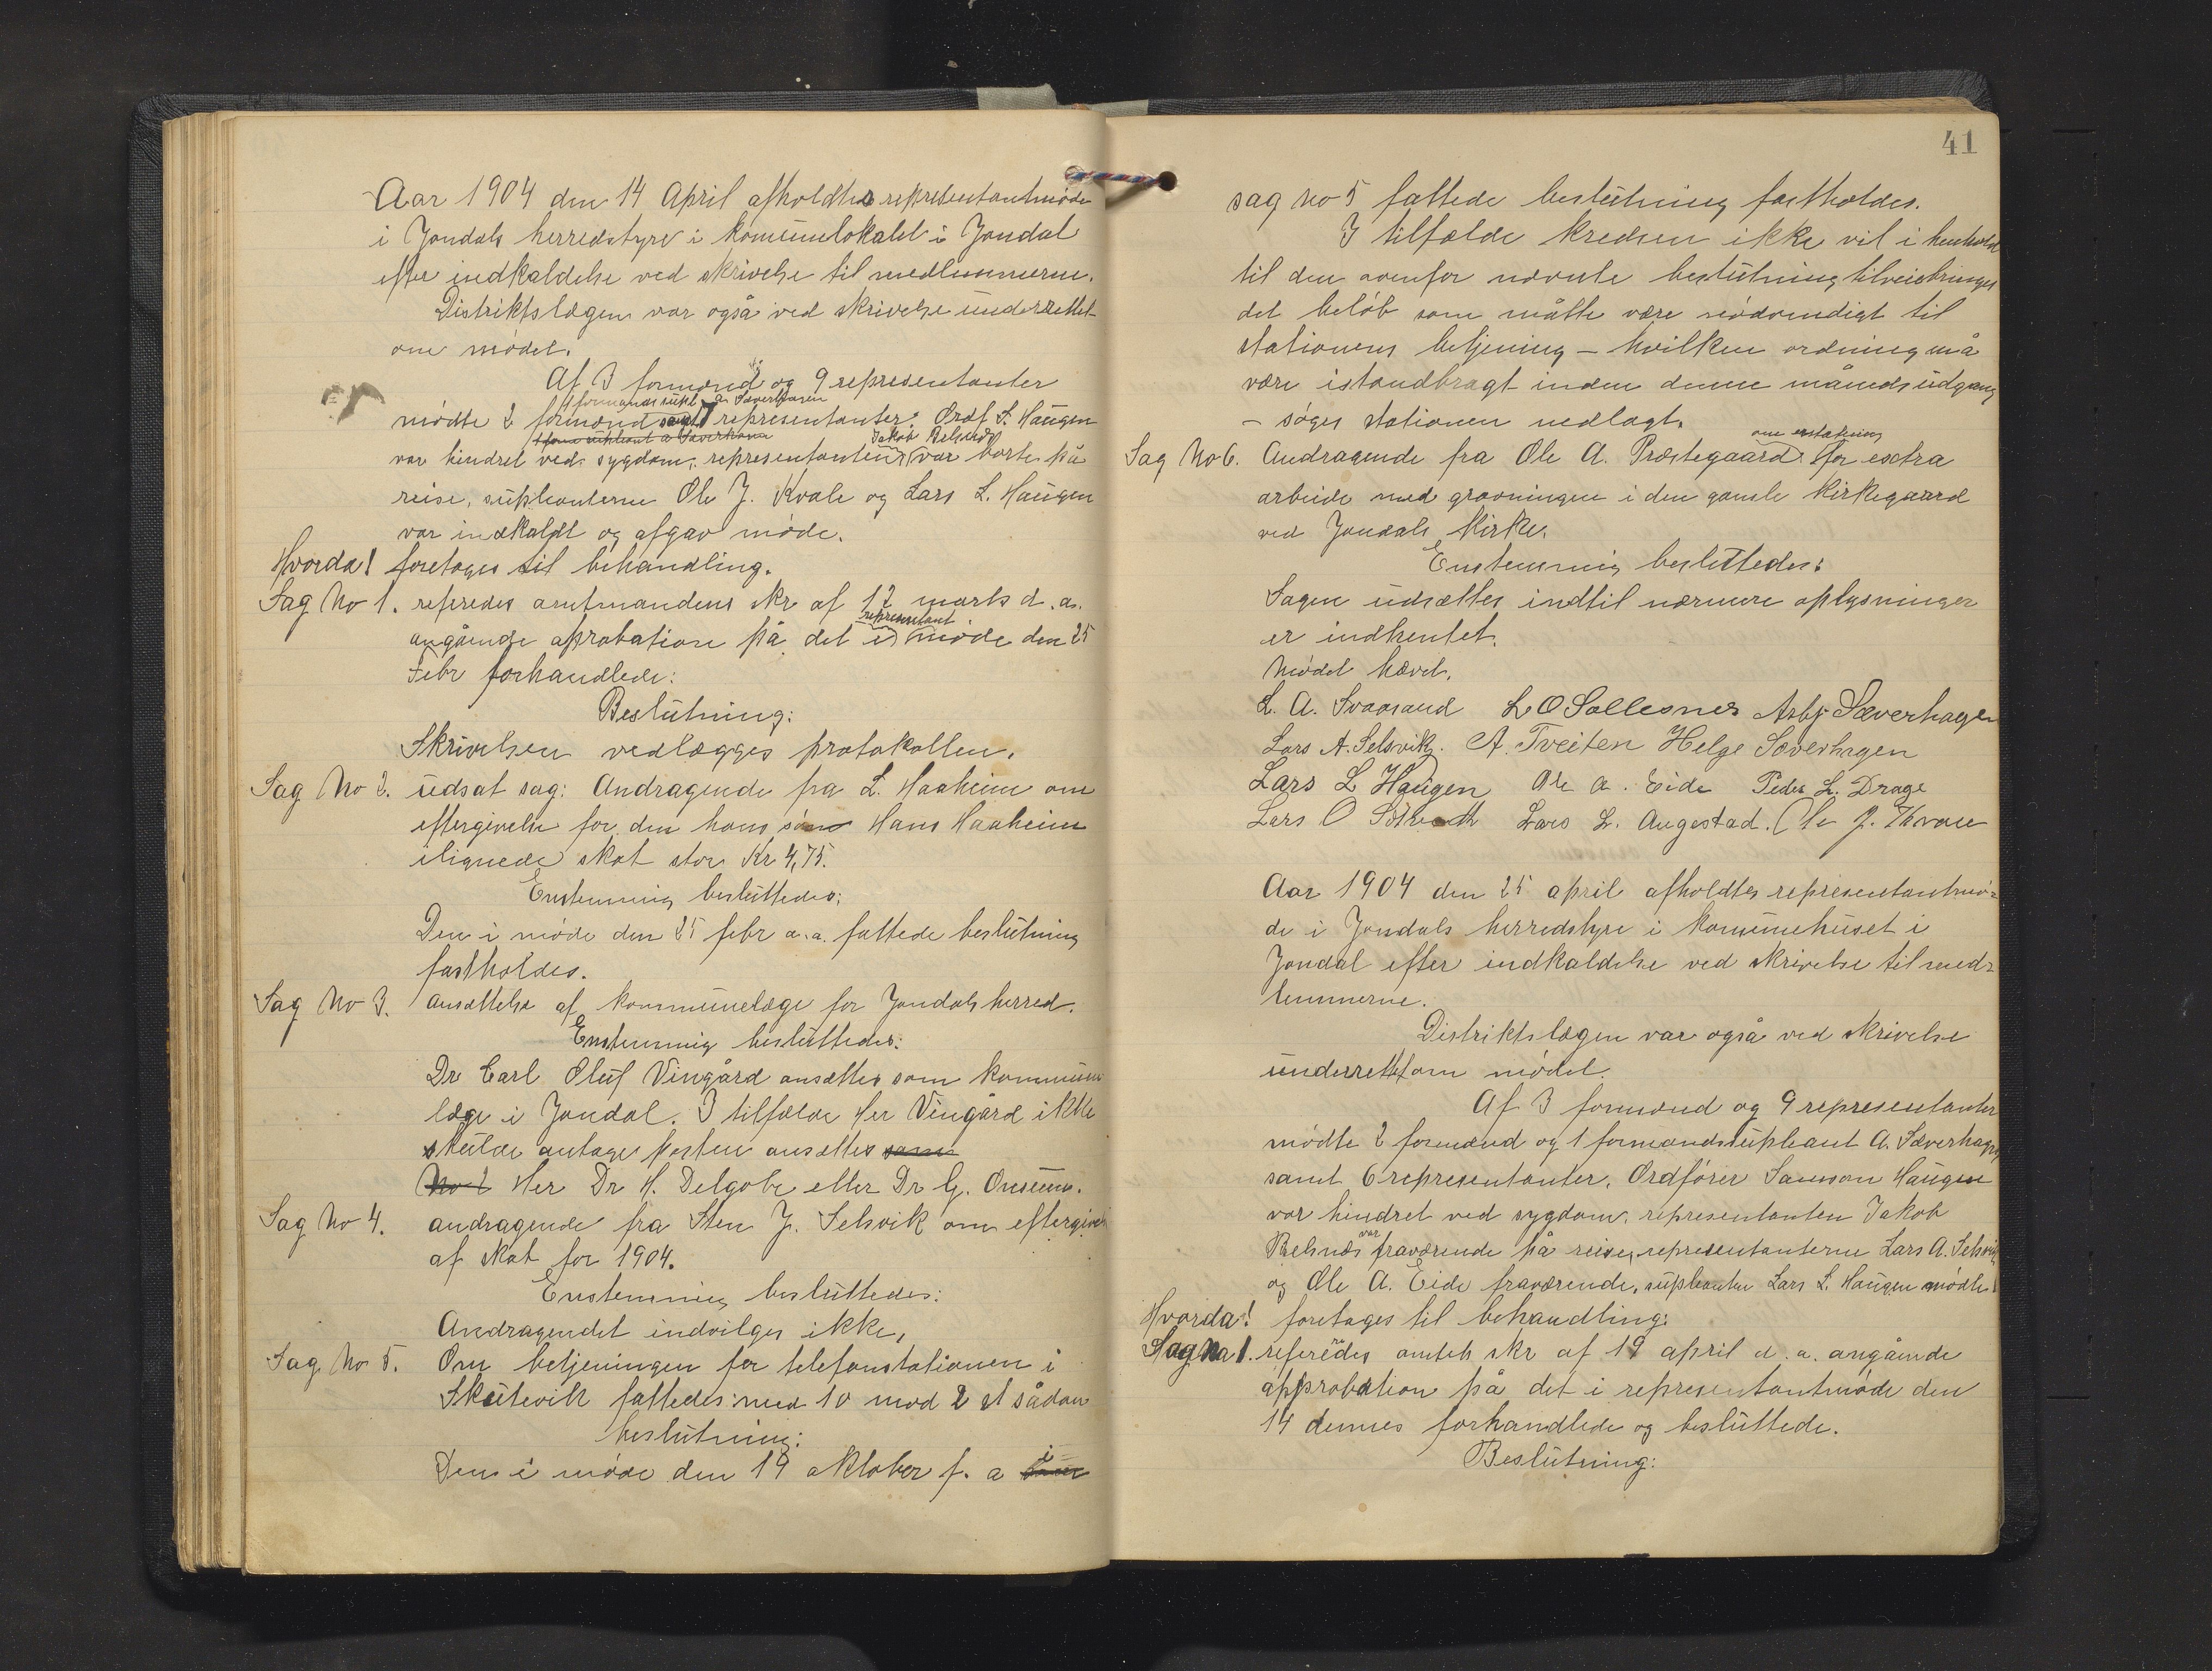 Aar 1904 den 14 April afholdtes representantmøde
i Jondals herredstyre i komunelokalet i Jondal
efter indkaldelse ved skrivelse til medlemmerne.
Distriktslægen var også ved skrivelse underrettet
om mødet.
Af 3 formænd og 9 representanter
1 formandssupl. A. Sæverhagen
mødte 2 formænd samt 7 representanter. Ordf. S. Haugen
Jakob Belsnæs
var hindret ved sygdom, representanten var borte på
reise, supleanterne Ole J. Kvale og Lars L. Haugen
var indkaldt og afgav møde.
Hvorda! foretages til behandling.
Sag No 1. referedes amtmandens skr af 17 marts d.a.
representant
angående aprobation på det i møde den 25
Febr forhandlede:
Beslutning:
Skrivelsen vedlægges protokollen.
Sag No 2. udsat sag: Andragende fra L. Haaheim om
eftergivelse for den hans søn Hans Haaheim
ilignede skat stor Kr 4,75.
Enstemmig besluttedes:
Den i møde den 25 febr a.a. fattede beslutning
fastholdes.
Sag No 3. ansættelse af kommunelæge for Jondals herred.
Enstemmig besluttedes:
Dr Carl Oluf Vingård ansættes som kommune
læge i Jondal. I tilfælde Her Vingård ikke
skulde antage posten ansættes som
No 2 Her Dr H. Delgobe eller Dr G. Onsum.
Sag No 4. andragende fra Sten J. Selsvik om eftergivelse
af skat for 1904.
Enstemmig besluttedes:
Andragendet indvilges ikke.
Sag No 5. Om betjeningen for telefonstationen i
Skutevik fattedes med 10 mod 2 st sådan
beslutning:
Den i møde den 19 oktober f. a i
41
sag no 5 fattede beslutning fastholdes.
I tilfælde kredsen ikke vil i henhold
til den ovenfor nævnte beslutning tilveiebringe
det beløb som måtte være nødvendigt til
stationens betjening – hvilken ordning må
være istandbragt inden denne måneds udgang
– søges stationen nedlagt.
om erstatning
Sag No 6. Andragende fra Ole A. Præstegaard for extra
arbeide med gravningen i den gamle kirkegaard
ved Jondals kirke.
Enstemmig besluttedes:
Sagen udsættes indtil nærmere oplysninger
er indhentet.
Mødet hævet.
L. A. Svaasand L O Sollesnes Asbj. Sæverhagen
Lars A. Selsvik. A. Tveiten Helge Sæverhagen
Lars L Haugen Ole A. Eide Peder L. Drage
Lars O Lars L. Augestad. Ole J. Kvale
Aar 1904 den 25 april afholdtes representantmø-
de i Jondals herredstyre i komunehuset i
Jondal efter indkaldelse ved skrivelse til med-
lemmerne.
Distriktslægen var også ved skrivelse
underrettet om mødet.
Af 3 formænd og 9 representanter
mødte 2 formænd og 1 formandssupleant A. Sæverhagen
samt 6 representanter. Ordfører Samson Haugen
var hindret ved sygdom, representanten Jakob
var
Belsnæs fraværende på reise, representanterne Lars A. Selsvik
og Ole A. Eide fraværende, supleanten Lars L. Haugen mødte.
Hvorda! foretages til behandling:
Sag No 1. refereredes amtets skr af 19 april d. a. angående
approbation på det i representantmøde den
14 dennes forhandlede og besluttede.
Beslutning: